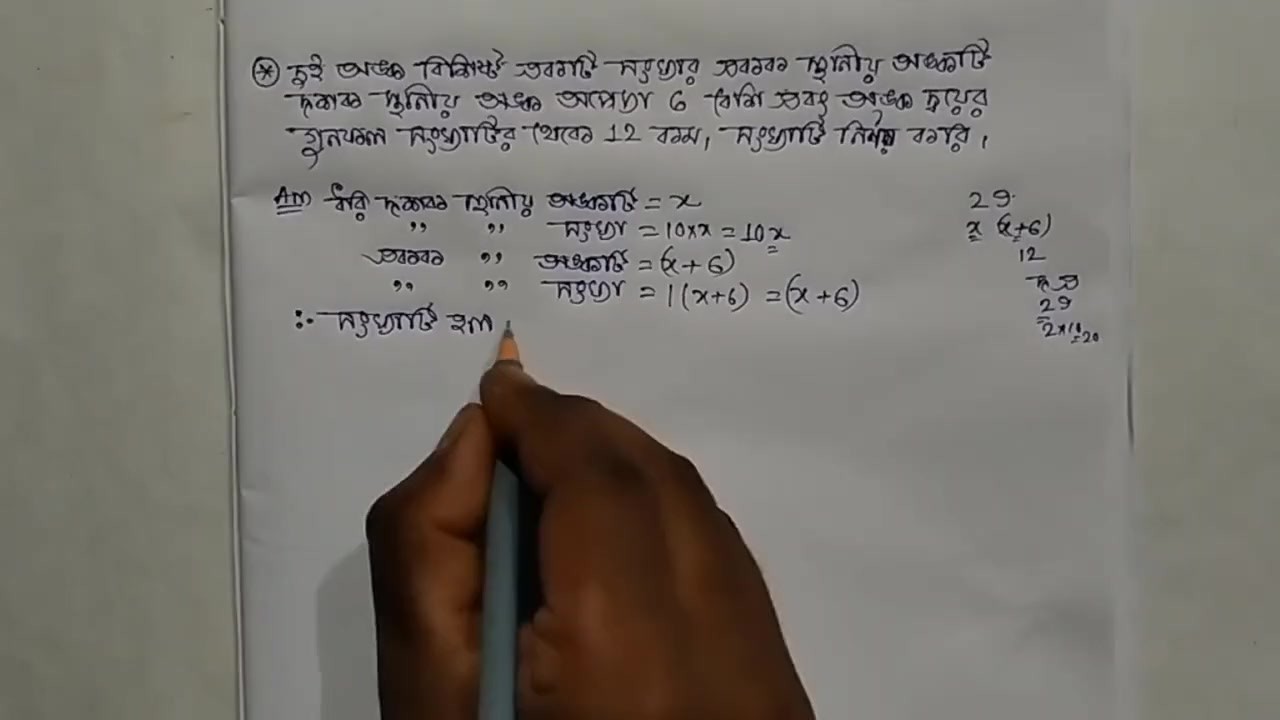 * দুই অঙ্ক বিশিষ্ট একটি সংখ্যার একক স্থানীয় অঙ্কটি
দশক স্থানীয় অঙ্ক অপেক্ষা 6 বেশি এবং অঙ্ক দ্বয়ের
গুনফল সংখ্যাটির থেকে 12 কম, সংখ্যাটি নির্ণয় করি।
Ans ধরি দশক স্থানীয় অঙ্কটি = x
,, ,, সংখ্যা = 10×x = 10x
একক ,, অঙ্কটি = (x + 6)
,, ,, সংখ্যা = 1(x+6) = (x+6)
∴ সংখ্যাটি হল
29
x (x+6)
12
দ এ
29
2×10=20